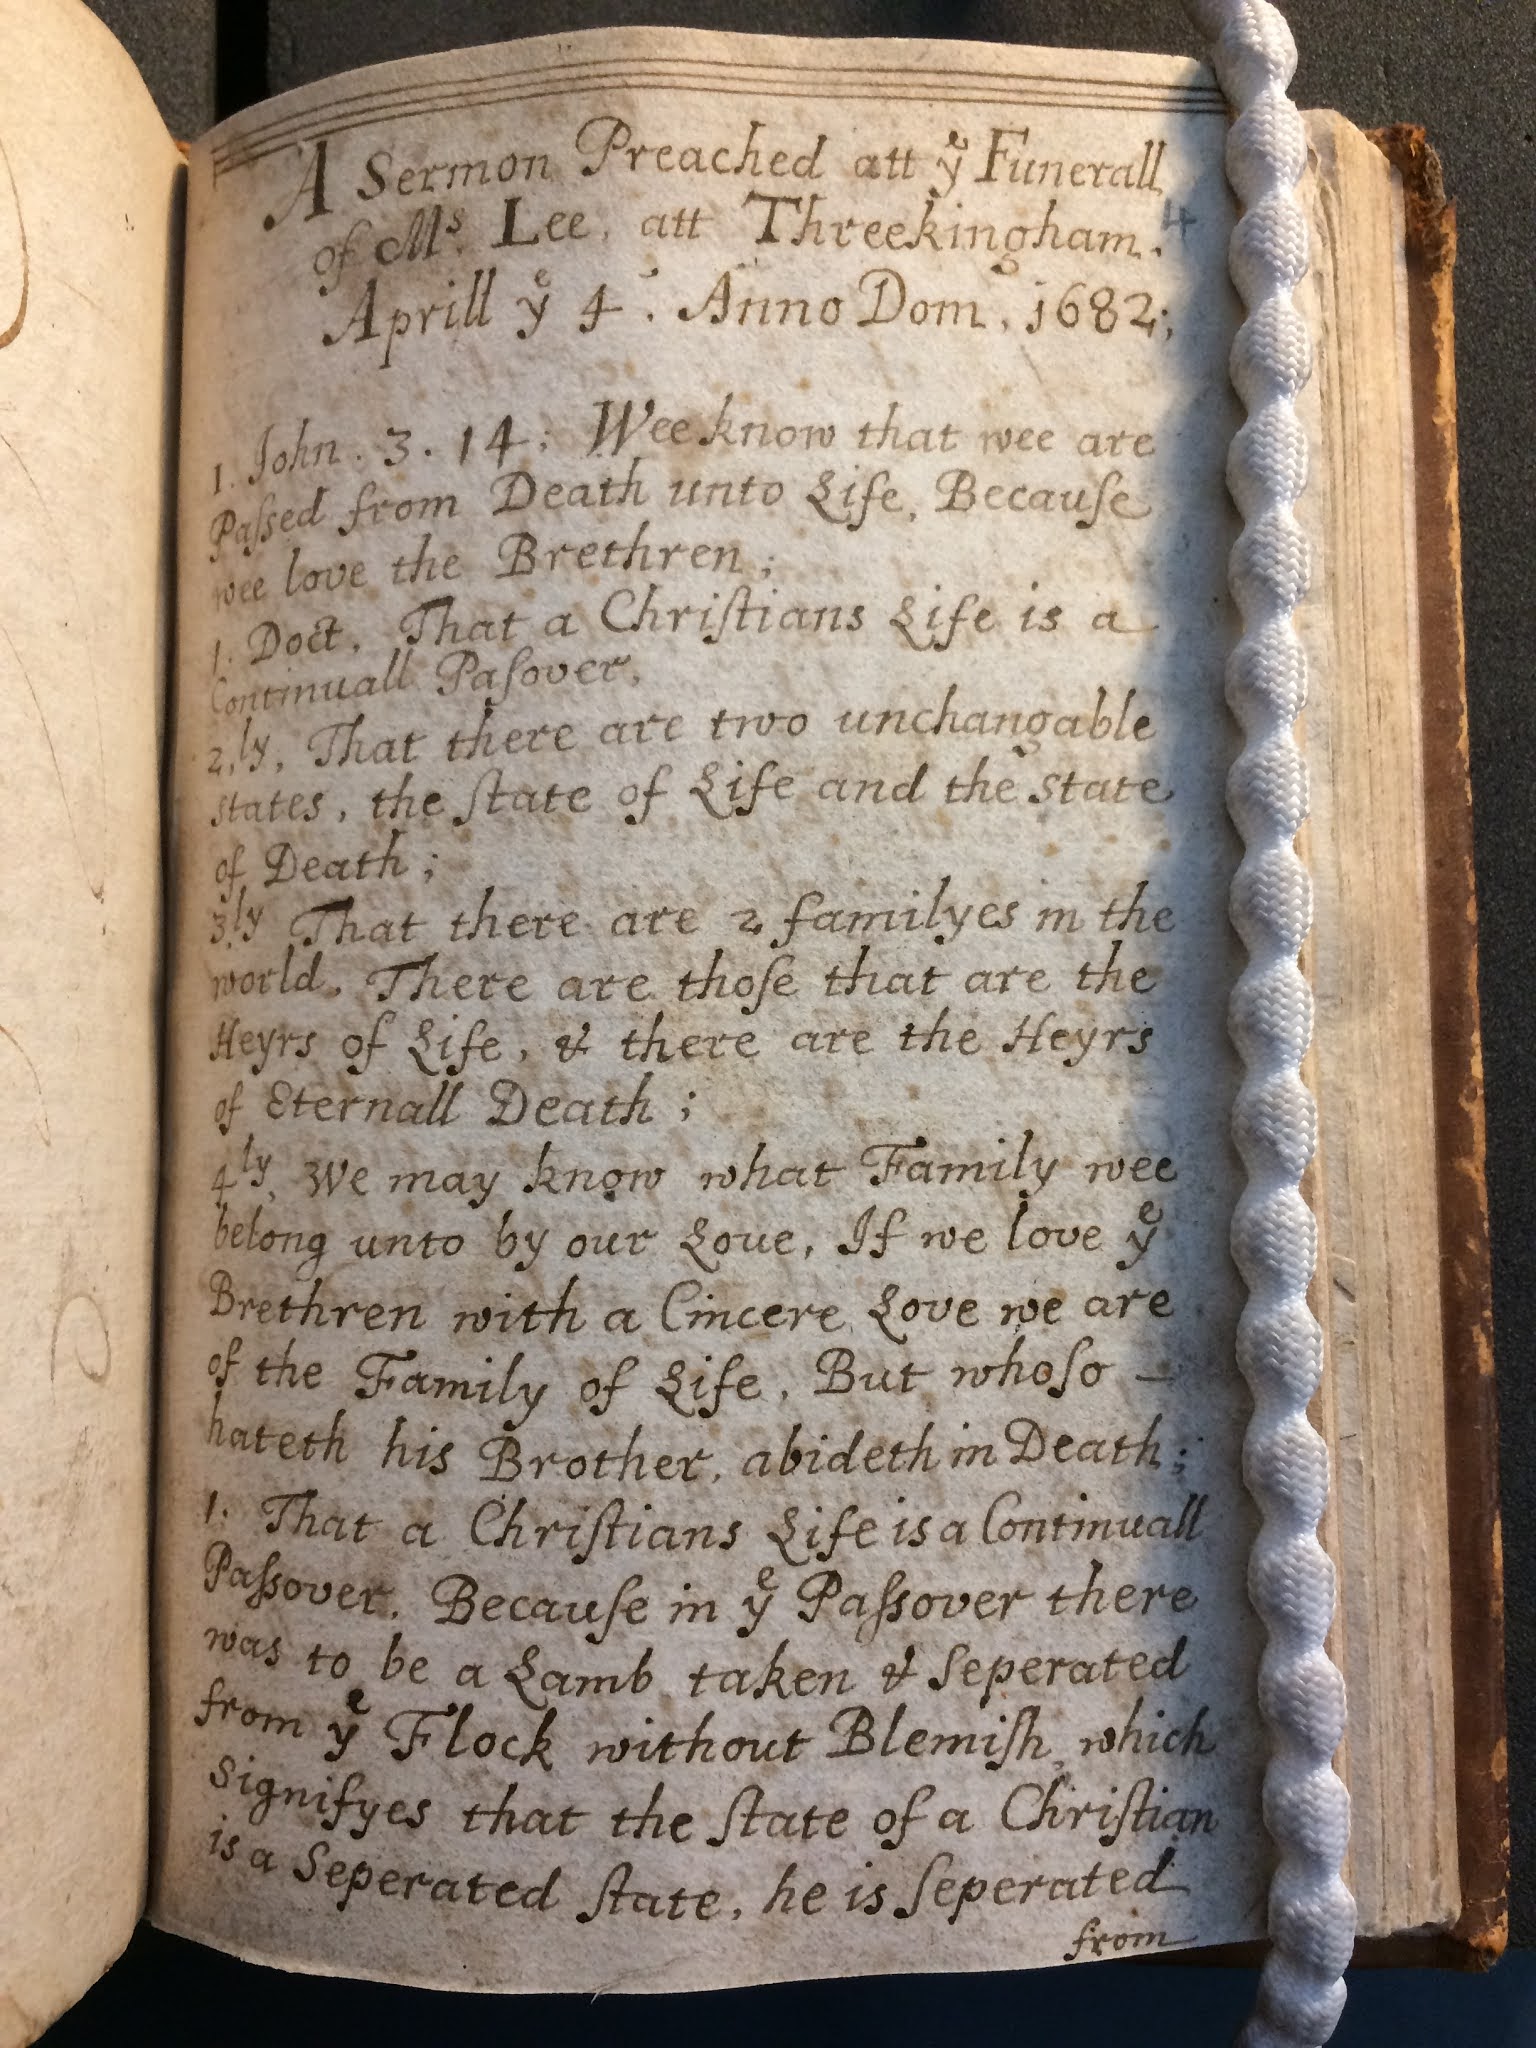 A Sermon Preached att yͤ Funerall
of Mˢ. Lee, att Threekingham.
4
Aprill yͤ 4. Anno Dom, 1682;
1. John. 3. 14; Wee know that wee are
Paſsed from Death unto Life, Becauſe
wee love the Brethren;
1. Doct, That a Chriſtians Life is a
Continuall Paſsover,
2,ˡʸ, That there are two unchangable
states, the ſtate of Life and the state
of Death;
3,ˡʸ That there are 2 familyes in the
world. There are thoſe that are the
Heyrs of Life, & there are the Heyrs
of Eternall Death;
4ˡʸ, We may know what Family wee
belong unto by our Loue, If we love yͤ
Brethren with a Cincere Love we are
of the Family of Life, But whoſo —
hateth his Brother, abideth in Death;
1. That a Chriſtians Life is a Continuall
Paſsover, Becauſe in yͤ Paſsover there
was to be a Lamb taken & Seperated
from yͤ Flock without Blemiſh, which
Signifyes that the ſtate of a Chriſtian
is a Seperated ſtate, he is ſeperated
from